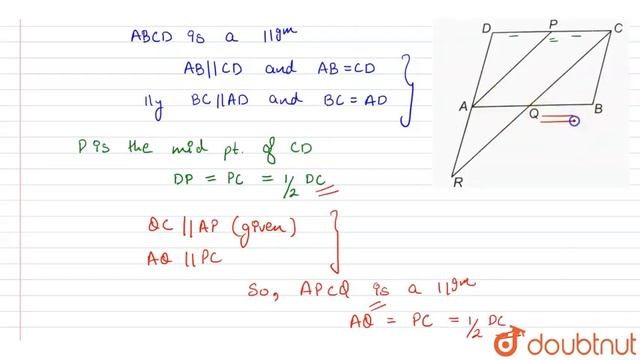 ABCD is a ||gm
AB||CD and AB = CD
||ly BC||AD and BC = AD
P is the mid pt. of CD
DP = PC = 1/2 DC
QC || AP (given)
AQ || PC
So, APCQ is a ||gm
AQ = PC = 1/2 DC
D P C
A Q B
R
doubtnut